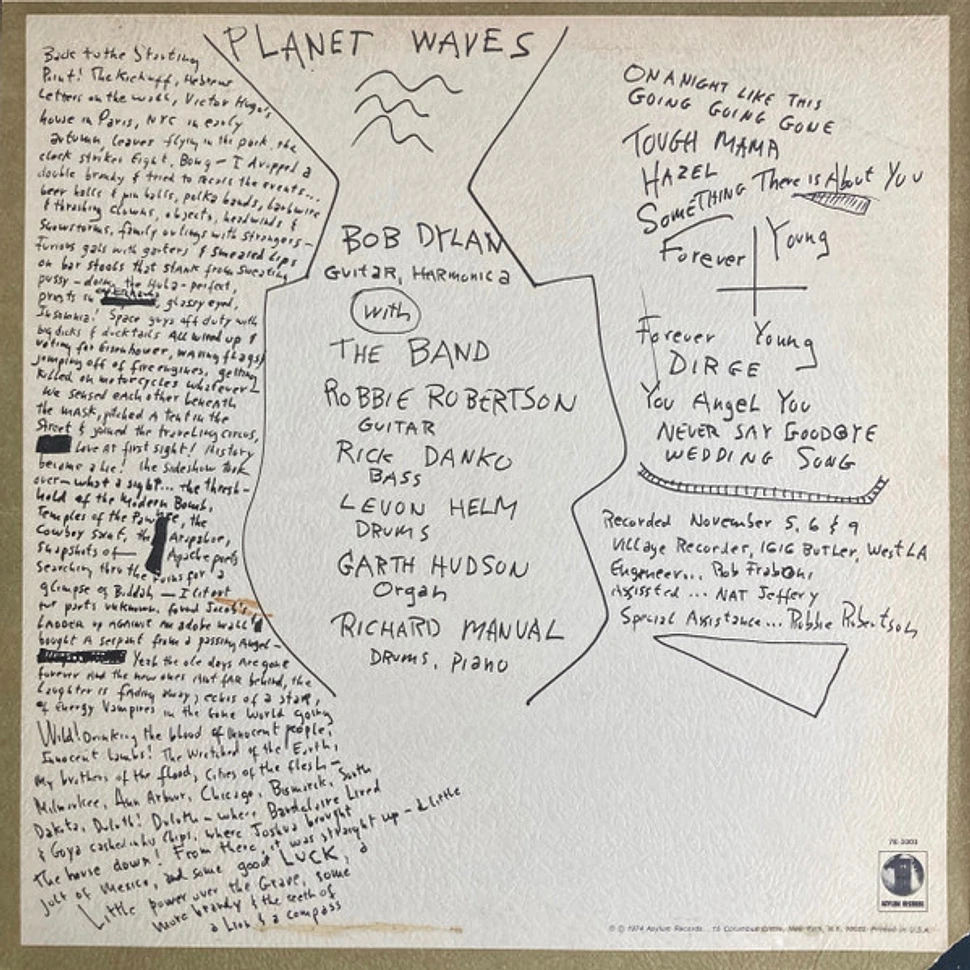 PLANET WAVES
Back to the Starting
Point! The Kickoff, Hebrew
Letters on the wall, Victor Hugo's
house in Paris, NYC in early
autumn, leaves flying in the park, the
clock strikes Eight, Bong - I dropped a
double brandy & tried to recall the events...
beer halls & pin balls, polka bands, barbwire
& thrashing clowns, objects, headwinds &
Snowstorms, family outings with strangers -
Furious gals with garters & smeared Lips
on bar stools that stank from sweating
pussy - doing the Hula - perfect,
priests in glassy eyed,
Insomnia! Space guys off duty with
big dicks & ducktails All wired up &
voting for Eisenhower, waving flags &
jumping off of fire engines, getting
Killed on motorcycles whatever -
We sensed each other beneath
the MASK, pitched A tent in the
Street & joined the traveling circus,
Love At first sight! History
became a lie! the sideshow took
over - what a sight... the thresh-
hold of the Modern Bomb,
Temples of the Pawnee, the
Cowboy Saint, the Arapahoe,
Snapshots of Apache poets
Searching thru the ruins for a
glimpse of Buddah - I lit out
for parts unknown, found Jacob's
LADDER up AGAINST An adobe wall &
bought A serpent from a passing Angel -
Yeah the ole days Are gone
forever And the new ones Aint fAR behind, the
Laughter is fAding away, echos of a staR,
of Energy Vampires in the Gone World going
Wild! Drinking the blood of innocent people,
Innocent lambs! The Wretched of the Earth,
My brothers of the flood, Cities of the flesh -
Milwaukee, Ann Arbor, Chicago, Bismarck, South
Dakota, Duluth! Duluth - where Baudelaire Lived
& Goya cashed in his Chips, where Joshua brought
The house down! From there, it was straight up - a little
jolt of Mexico, and some good LUCK, a
Little power over the Grave, some
more brandy & the teeth of
a Lion & a compass
BOB DYLAN
GUITAR, HARMONICA
with
THE BAND
ROBBIE ROBERTSON
GUITAR
RICK DANKO
BASS
LEVON HELM
DRUMS
GARTH HUDSON
Organ
RICHARD MANUAL
DRUMS, Piano
ON A NIGHT LIKE THIS
GOING GOING GONE
TOUGH MAMA
HAZEL
SOMETHING There is About You
Forever Young
Forever Young
DIRGE
You Angel You
NEVER SAY GOODBYE
WEDDING SONG
Recorded November 5, 6 & 9
Village Recorder, 1616 BUTLER, West LA
Engineer... Rob Fraboni
Assissted ... NAT Jeffery
Special Assistance... Robbie Robertson
7E-1003
ASYLUM RECORDS
© ℗ 1974 Asylum Records, 15 Columbus Circle, New York, N.Y. 10023 Printed in U.S.A.